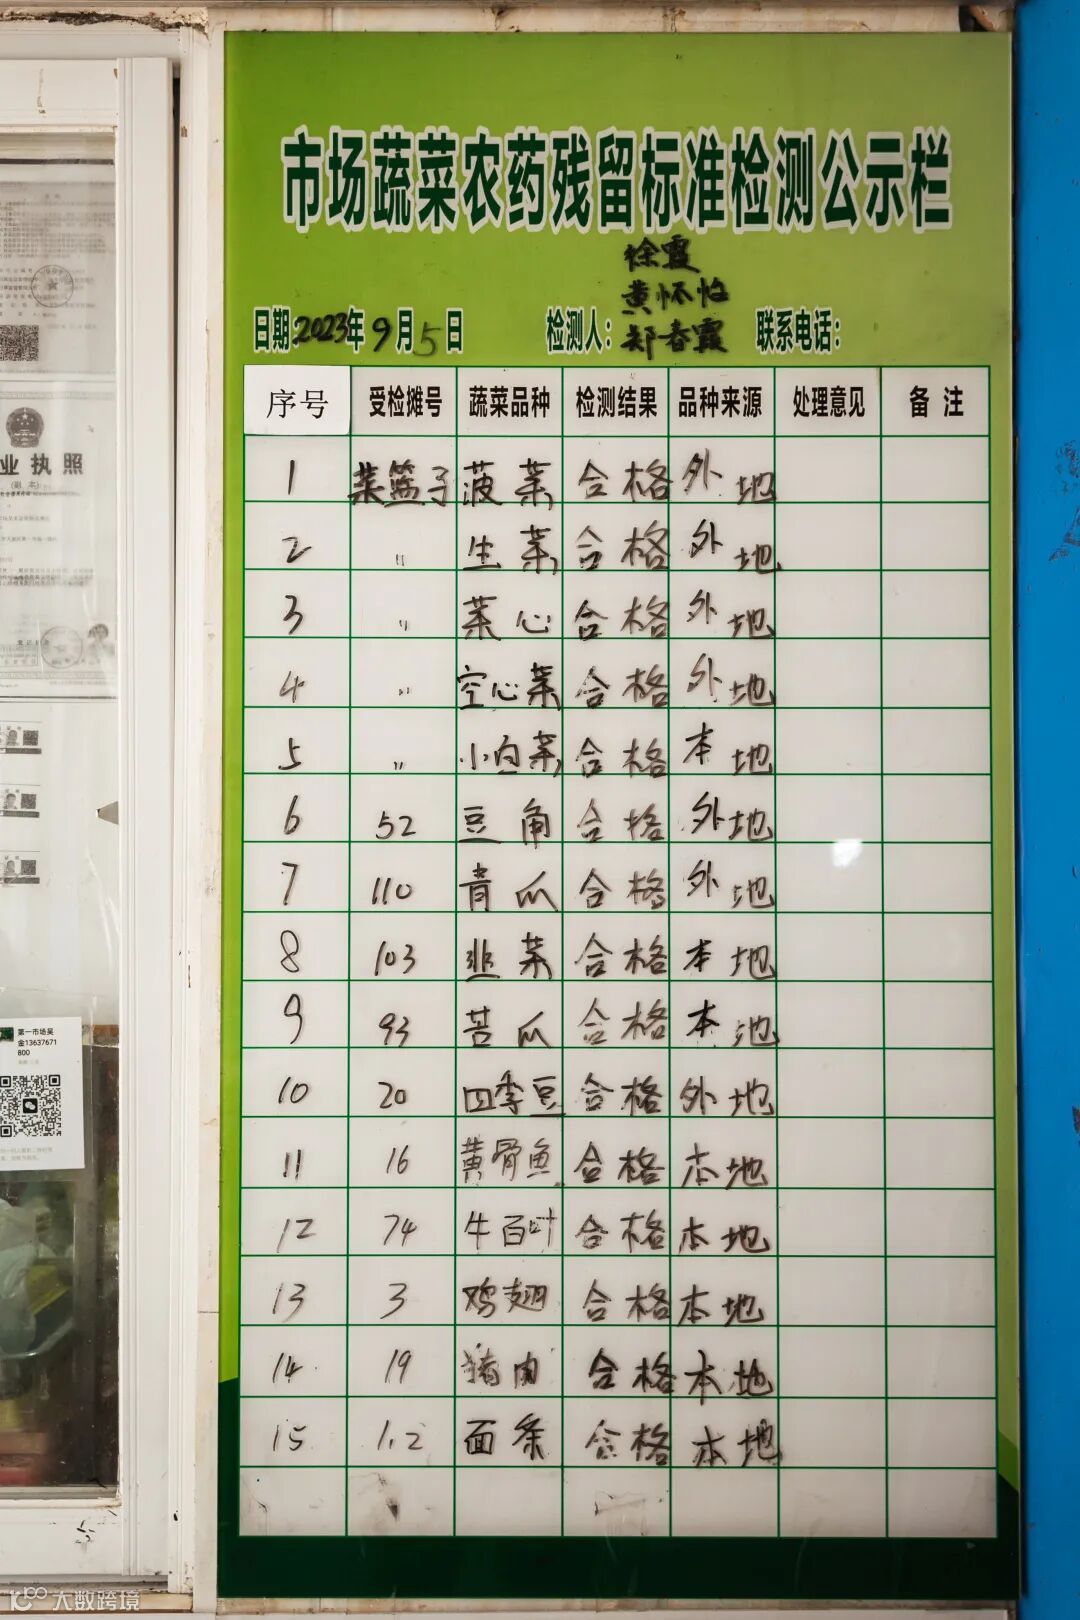 市场蔬菜农药残留标准检测公示栏
徐霞
黄怀怡
日期:2023年9月5日 检测人:郑春霞 联系电话:
序号 受检摊号 蔬菜品种 检测结果 品种来源 处理意见 备注
1 菜篮子 菠菜 合格 外地
2 〃 生菜 合格 外地
3 〃 菜心 合格 外地
4 〃 空心菜 合格 外地
5 〃 小白菜 合格 本地
6 52 豆角 合格 外地
7 110 青瓜 合格 外地
8 103 韭菜 合格 本地
9 93 苦瓜 合格 本地
10 20 四季豆 合格 外地
11 16 黄骨鱼 合格 本地
12 74 牛百叶 合格 本地
13 3 鸡翅 合格 本地
14 19 猪肉 合格 本地
15 1.2 面条 合格 本地
业执照
(副本)
第一市场吴
金13637671
800
大数跨境